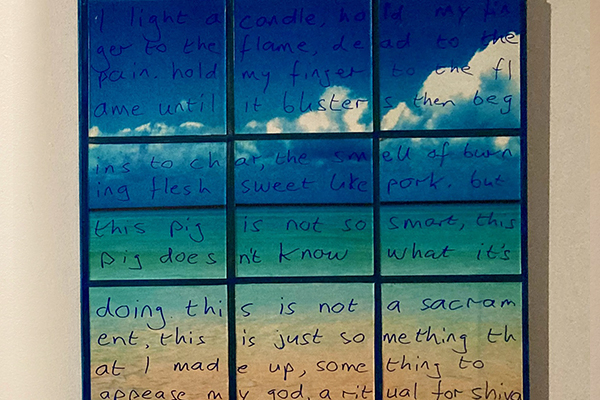 I light a candle, hold my fin
ger to the flame, dead to the
pain. hold my finger to the fl
ame until it blusters then beg
ins to char, the smell of burn
ing flesh sweet like pork. but
this pig is not so smart, this
pig doesn't know what it's
doing this is not a sacram
ent, this is just something th
at I made up, something to
appease my god, a ritual for shiva